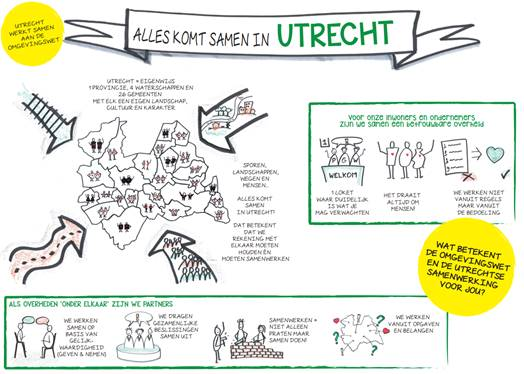 UTRECHT
WERKT SAMEN
AAN DE
OMGEVINGSWET
ALLES KOMT SAMEN IN UTRECHT
UTRECHT = EIGENWIJS
1 PROVINCIE, 4 WATERSCHAPPEN EN
26 GEMEENTEN
MET ELK EEN EIGEN LANDSCHAP,
CULTUUR EN KARAKTER.
SPOREN,
LANDSCHAPPEN,
WEGEN EN
MENSEN..
ALLES
KOMT
SAMEN
IN UTRECHT!
DAT BETEKENT
DAT WE
REKENING MET
ELKAAR MOETEN
HOUDEN ÉN
MOETEN SAMENWERKEN
Voor onze inwoners en ondernemers
zijn we samen een betrouwbare overheid
1
WELKOM
1 LOKET
WAAR DUIDELIJK
IS WAT JE
MAG VERWACHTEN
HET DRAAIT
ALTIJD OM
MENSEN!
WE WERKEN NIET
VANUIT REGELS
MAAR VANUIT
DE BEDOELING
WAT BETEKENT
DE OMGEVINGSWET
EN DE UTRECHTSE
SAMENWERKING
VOOR JOU?
ALS OVERHEDEN 'ONDER ELKAAR' ZIJN WE PARTNERS
WE WERKEN
SAMEN OP
BASIS VAN
GELIJK-
WAARDIGHEID
(GEVEN & NEMEN)
WE DRAGEN
GEZAMENLIJKE
BESLISSINGEN
SAMEN UIT
SAMENWERKEN =
NIET ALLEEN
PRATEN MAAR
SAMEN DOEN!
? ? ? ?
WE WERKEN
VANUIT OPGAVEN
EN BELANGEN